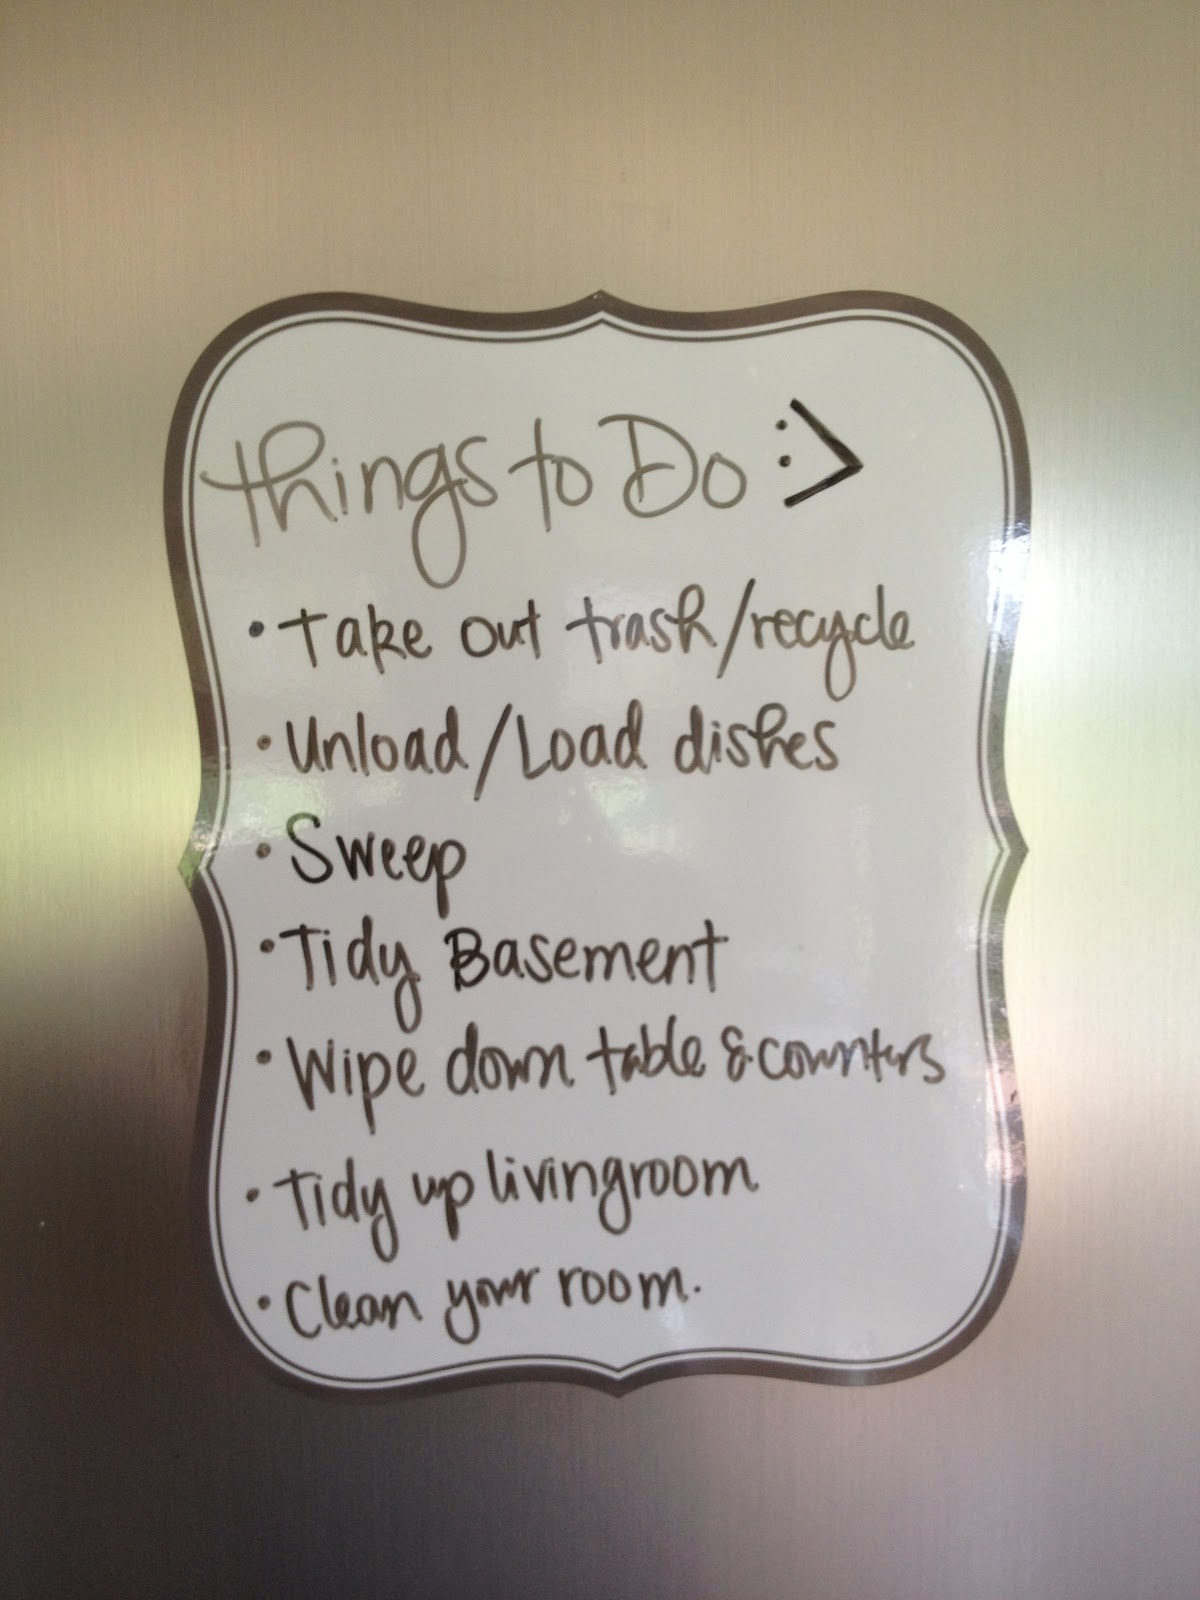 things to Do :>
• Take out trash/recycle
• Unload/Load dishes
• Sweep
• Tidy Basement
• Wipe down table & counters
• Tidy up livingroom
• Clean your room.